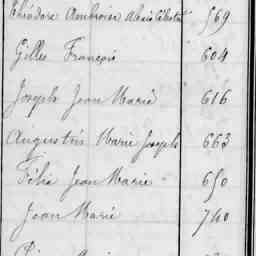 Théodore Ambroise Alexis Célestin 569
Gilles François 604
Joseph Jean Marie 616
Augustin Marie Joseph 663
Félix Jean Marie 650
Jean Marie 740